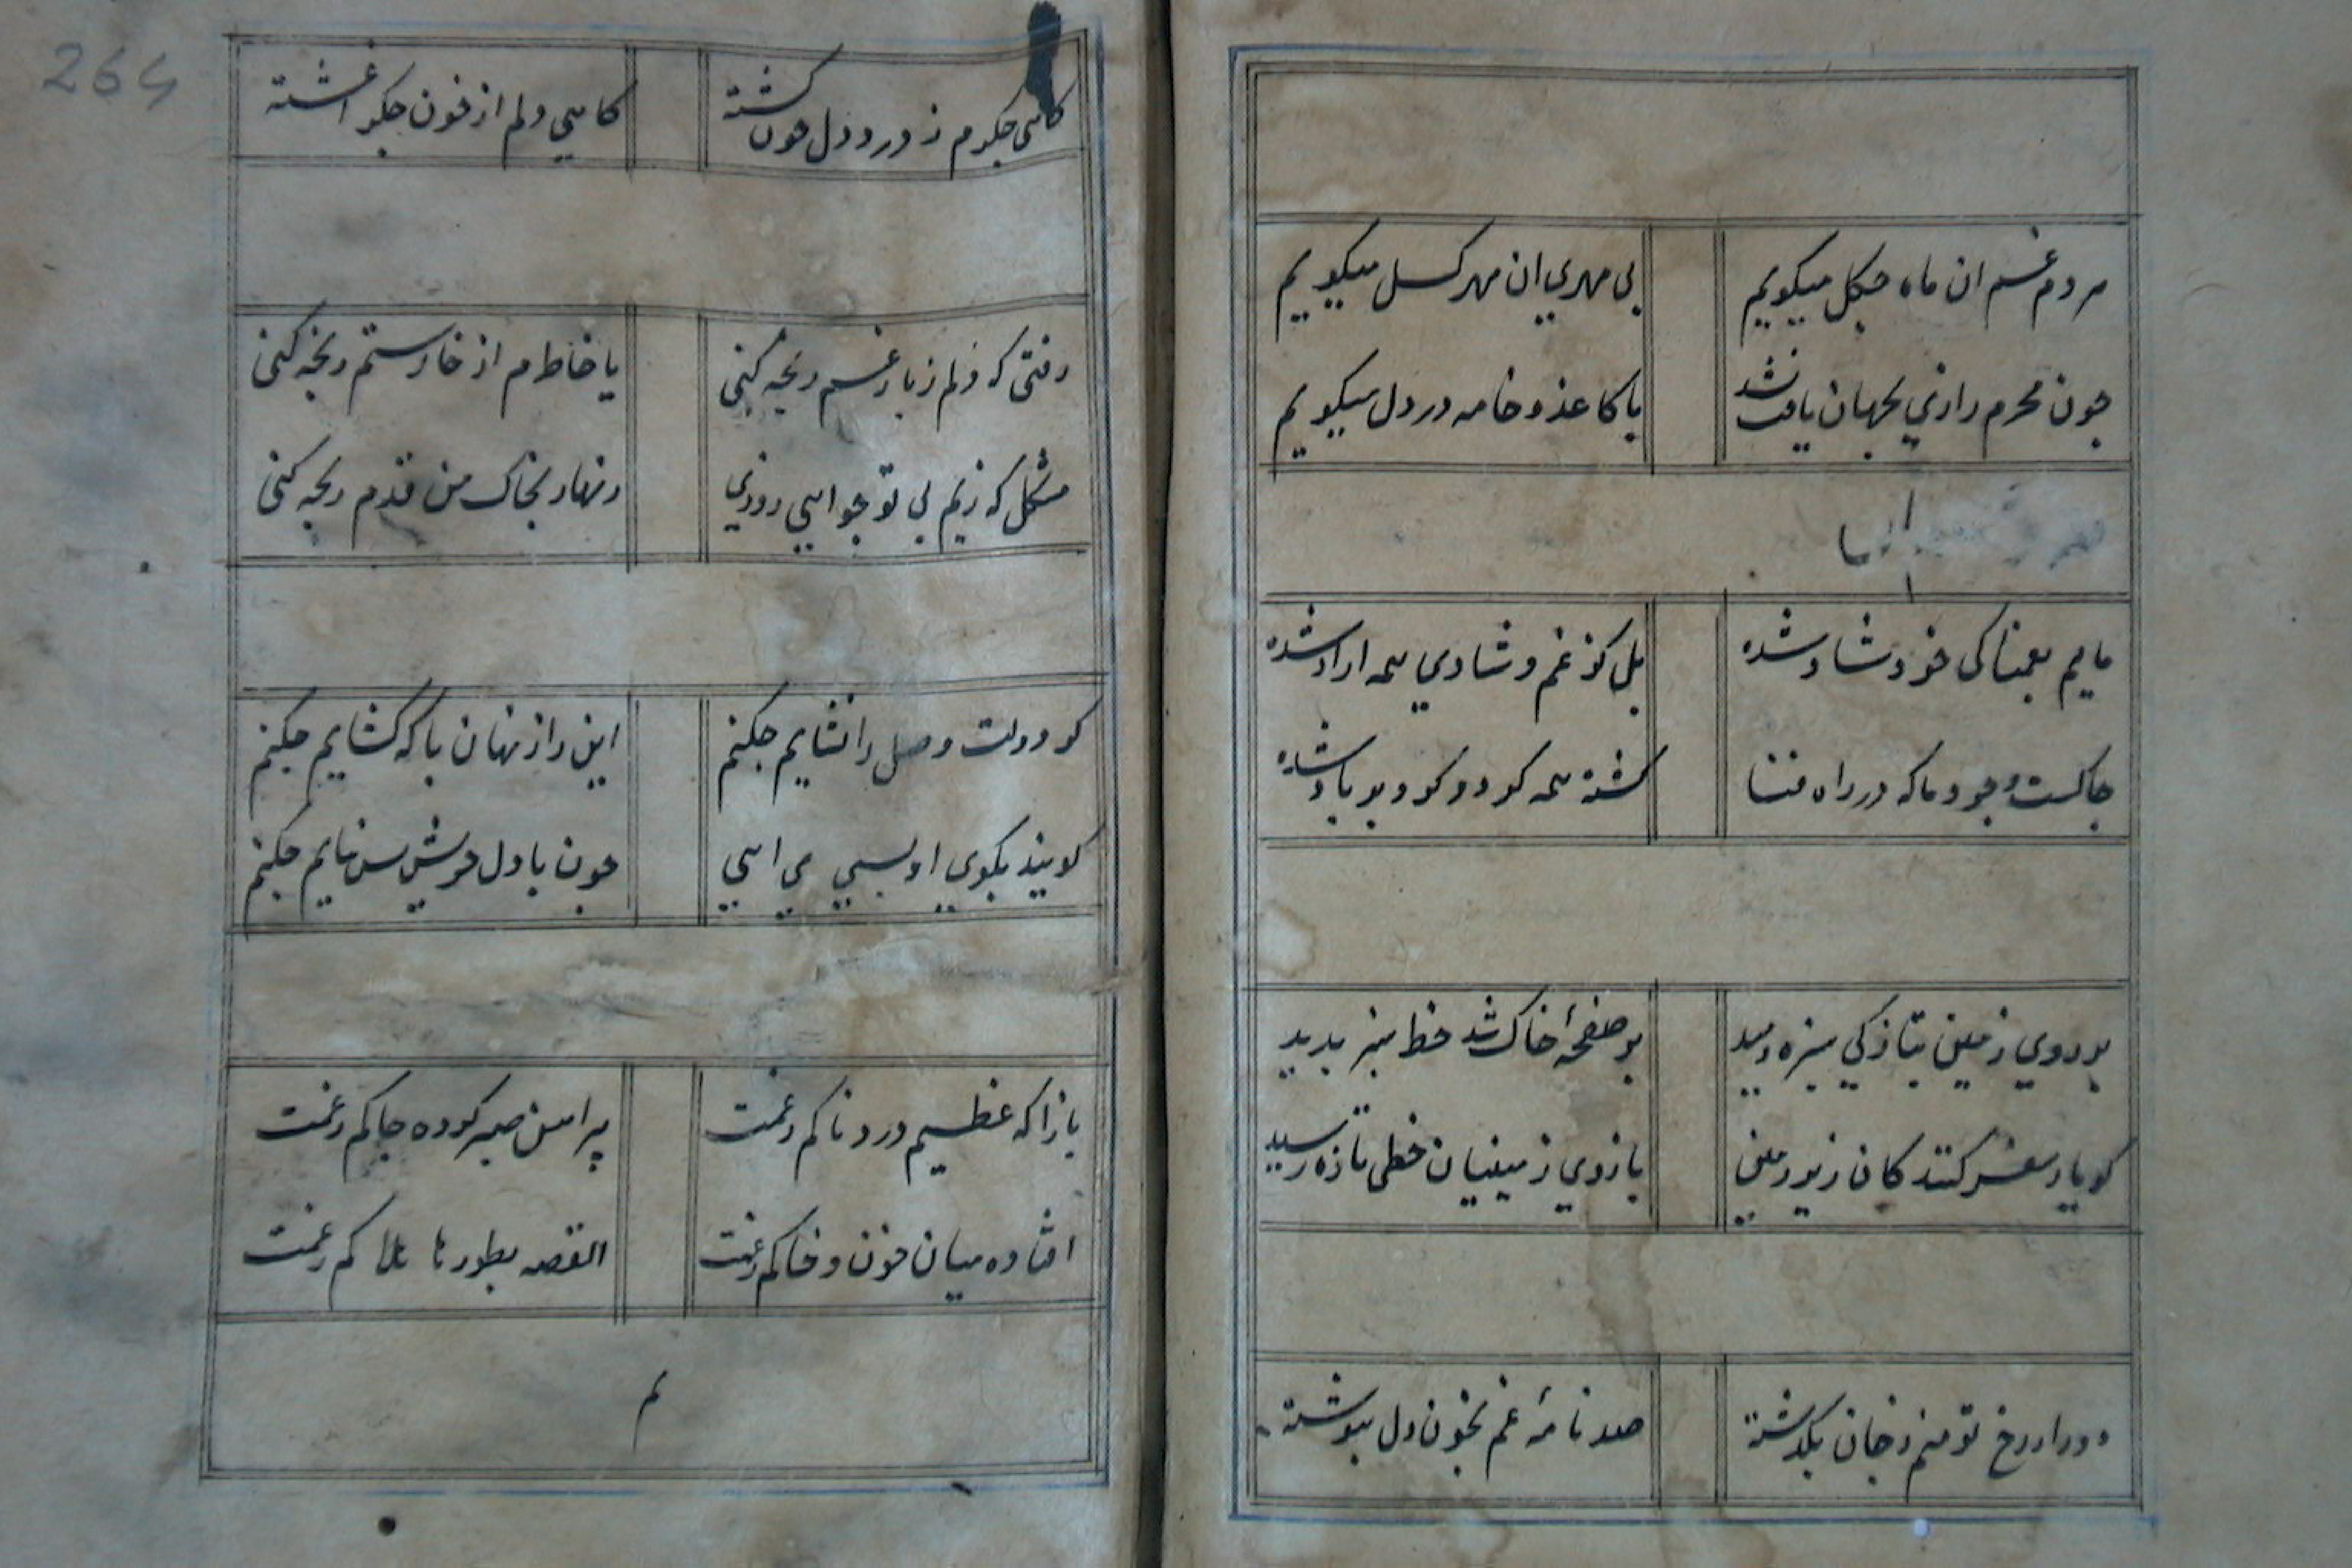 مردم غم ان ماه چکل میکویم
بی مهری ان مهر کسل میکویم
چون محرم رازی بجهان یافت نشد
با کاغذ و خامه درد دل میکویم
مایم بغمناکی خود شاد شده
بل کز غم و شادی همه ازاد شده
خاکست وجود ما که در راه فنا
کشته همه کرد و کرد بر باد شده
بر روی زمین بتازکی سبزه دمید
بر صفحهٔ خاک شد خط سبز بدید
کویا ز سفر کنندکان زیر زمین
بازوی زمینیان خطی تازه رسید
دور از رخ تو منم ز جان بکذشته
صد نامهٔ غم بخون دل بنوشته
264
کاهی جکرم ز درد دل خون کشته
کاهی دلم از خون جکر اغشته
رفتی که دلم ز بار غم رنجه کنی
یا خاطرم از خار ستم رنجه کنی
مشکل که زیم بی تو چو ایی روزی
زنهار بخاک من قدم رنجه کنی
کر دولت وصل را نشایم چکنم
این راز نهان با که کشایم چکنم
کویند بکوی او بسی می ایی
چون با دل خویش بس نیایم چکنم
باز ا که عظیم دردناکم ز غمت
پیراهن صبر کرده چاکم ز غمت
افتاده میان خون و خاکم ز غمت
القصه بطورها هلاکم ز غمت